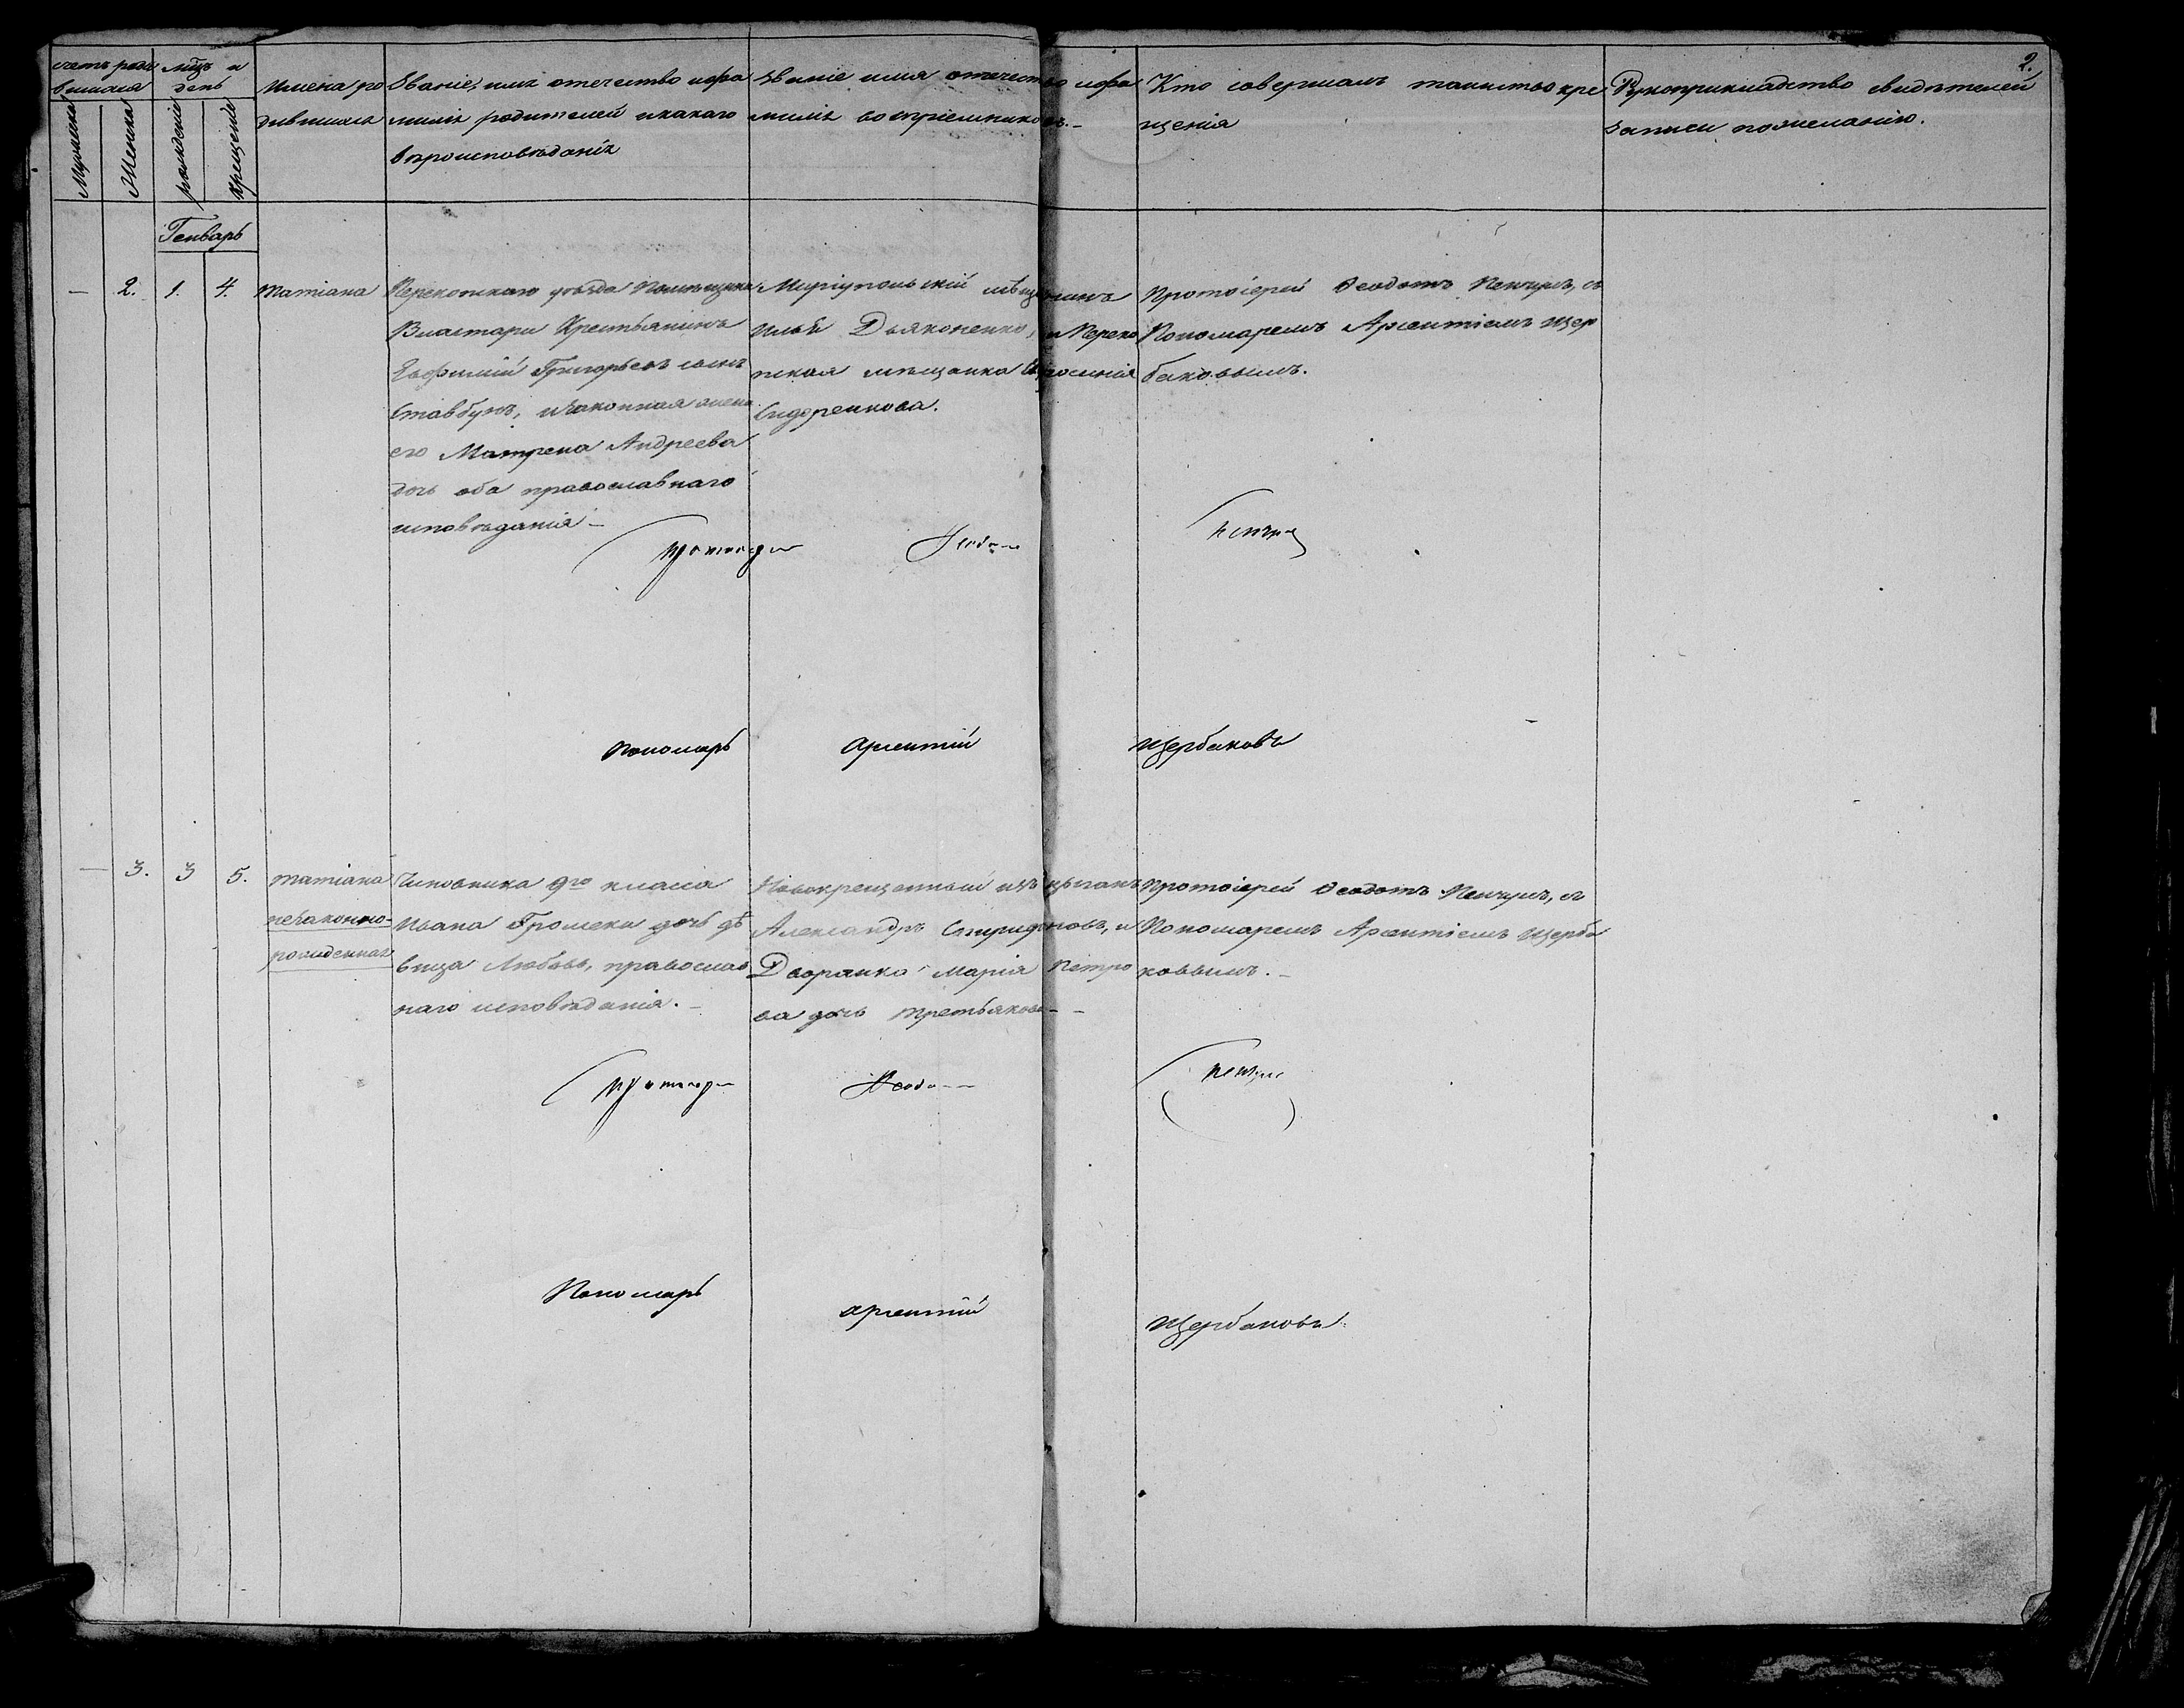 2.
счетъ роди
вшихся
мцъ и
день
Мужеска
Женска
рожденія
крещенія
Имена ро
дившихся
Званіе, имя отечество и фа
милія родителей и какаго
вѣроисповѣданія
Званіе имя отечество и фа
милія воспріемниковъ.
Кто совершалъ таинство кре
щенія
Рукоприкладство свидѣтелей
записи по желанію.
Генварь
— 2. 1. 4.
Татіана
Перекопскаго уѣзда помѣщика
Властари Крестьянинъ
Евфимій Григорьевъ сынъ
Ставбунъ, и законная жена
его Матрена Андреева
дочь оба православнаго
исповѣданія –
Маріупольскій мѣщанинъ
Илья Дьяконенко, и Переко
пская мѣщанка
Сидоренкова.
Протоіерей Ѳеодотъ Пенчулъ, съ
Пономаремъ Арсентіемъ Щер
баковымъ.
Протоіерей Ѳеодотъ
Пономарь Арсентій Щербаковъ
— 3. 3 5.
Татіана
незаконно-
рожденная
Чиновника 9го класса
Ивана Громеки дочь дѣ
вица Любовь, православ
наго исповѣданія. –
Новокрещенный изъ цыганъ
Александръ Спиридоновъ, и
Дворянка Марія Петро
ва дочь Третьякова –
Протоіерей Ѳеодотъ Пенчулъ, съ
Пономаремъ Арсентіемъ Щерба
ковымъ. –
Протоіерей Ѳеодотъ
Пономарь Арсентій Щербаковъ